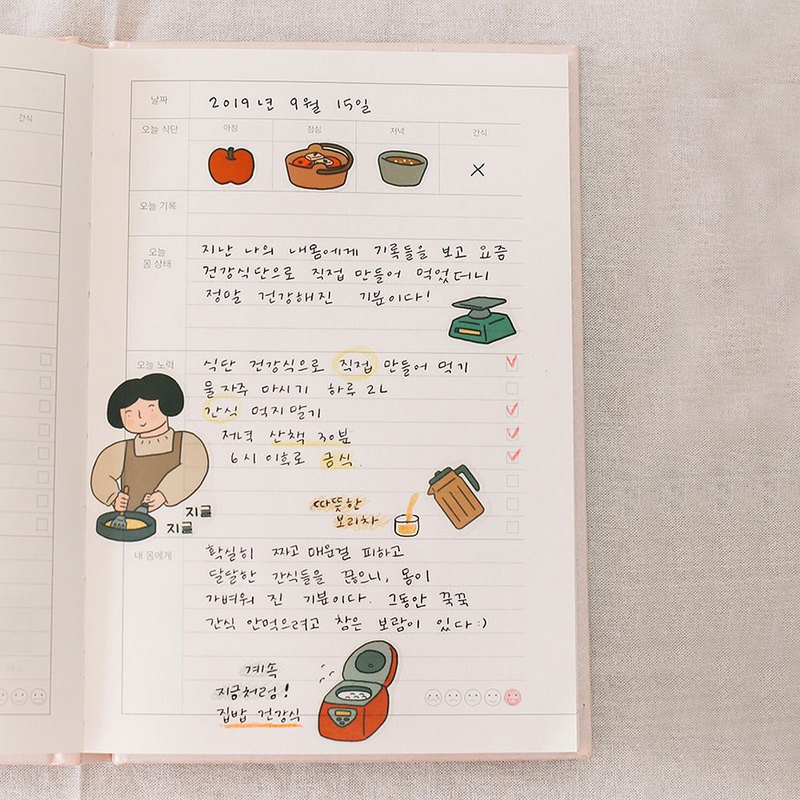 간식
날짜 2019년 9월 15일
오늘 식단 아침 점심 저녁 간식
X
오늘 기록
오늘
몸 상태
지난 나의 내몸에게 기록들을 보고 요즘
건강식단으로 직접 만들어 먹었더니
정말 건강해진 기분이다!
오늘 노력
식단 건강식으로 직접 만들어 먹기
물 자주 마시기 하루 2L
간식 먹지 말기
저녁 산책 30분
6시 이후로 금식.
지글
지글
따뜻한
보리차
내 몸에게
확실히 짜고 매운걸 피하고
달달한 간식들을 끊으니, 몸이
가벼워 진 기분이다. 그동안 꾹꾹
간식 안먹으려고 참은 보람이 있다:)
계속
지금처럼!
집밥 건강식